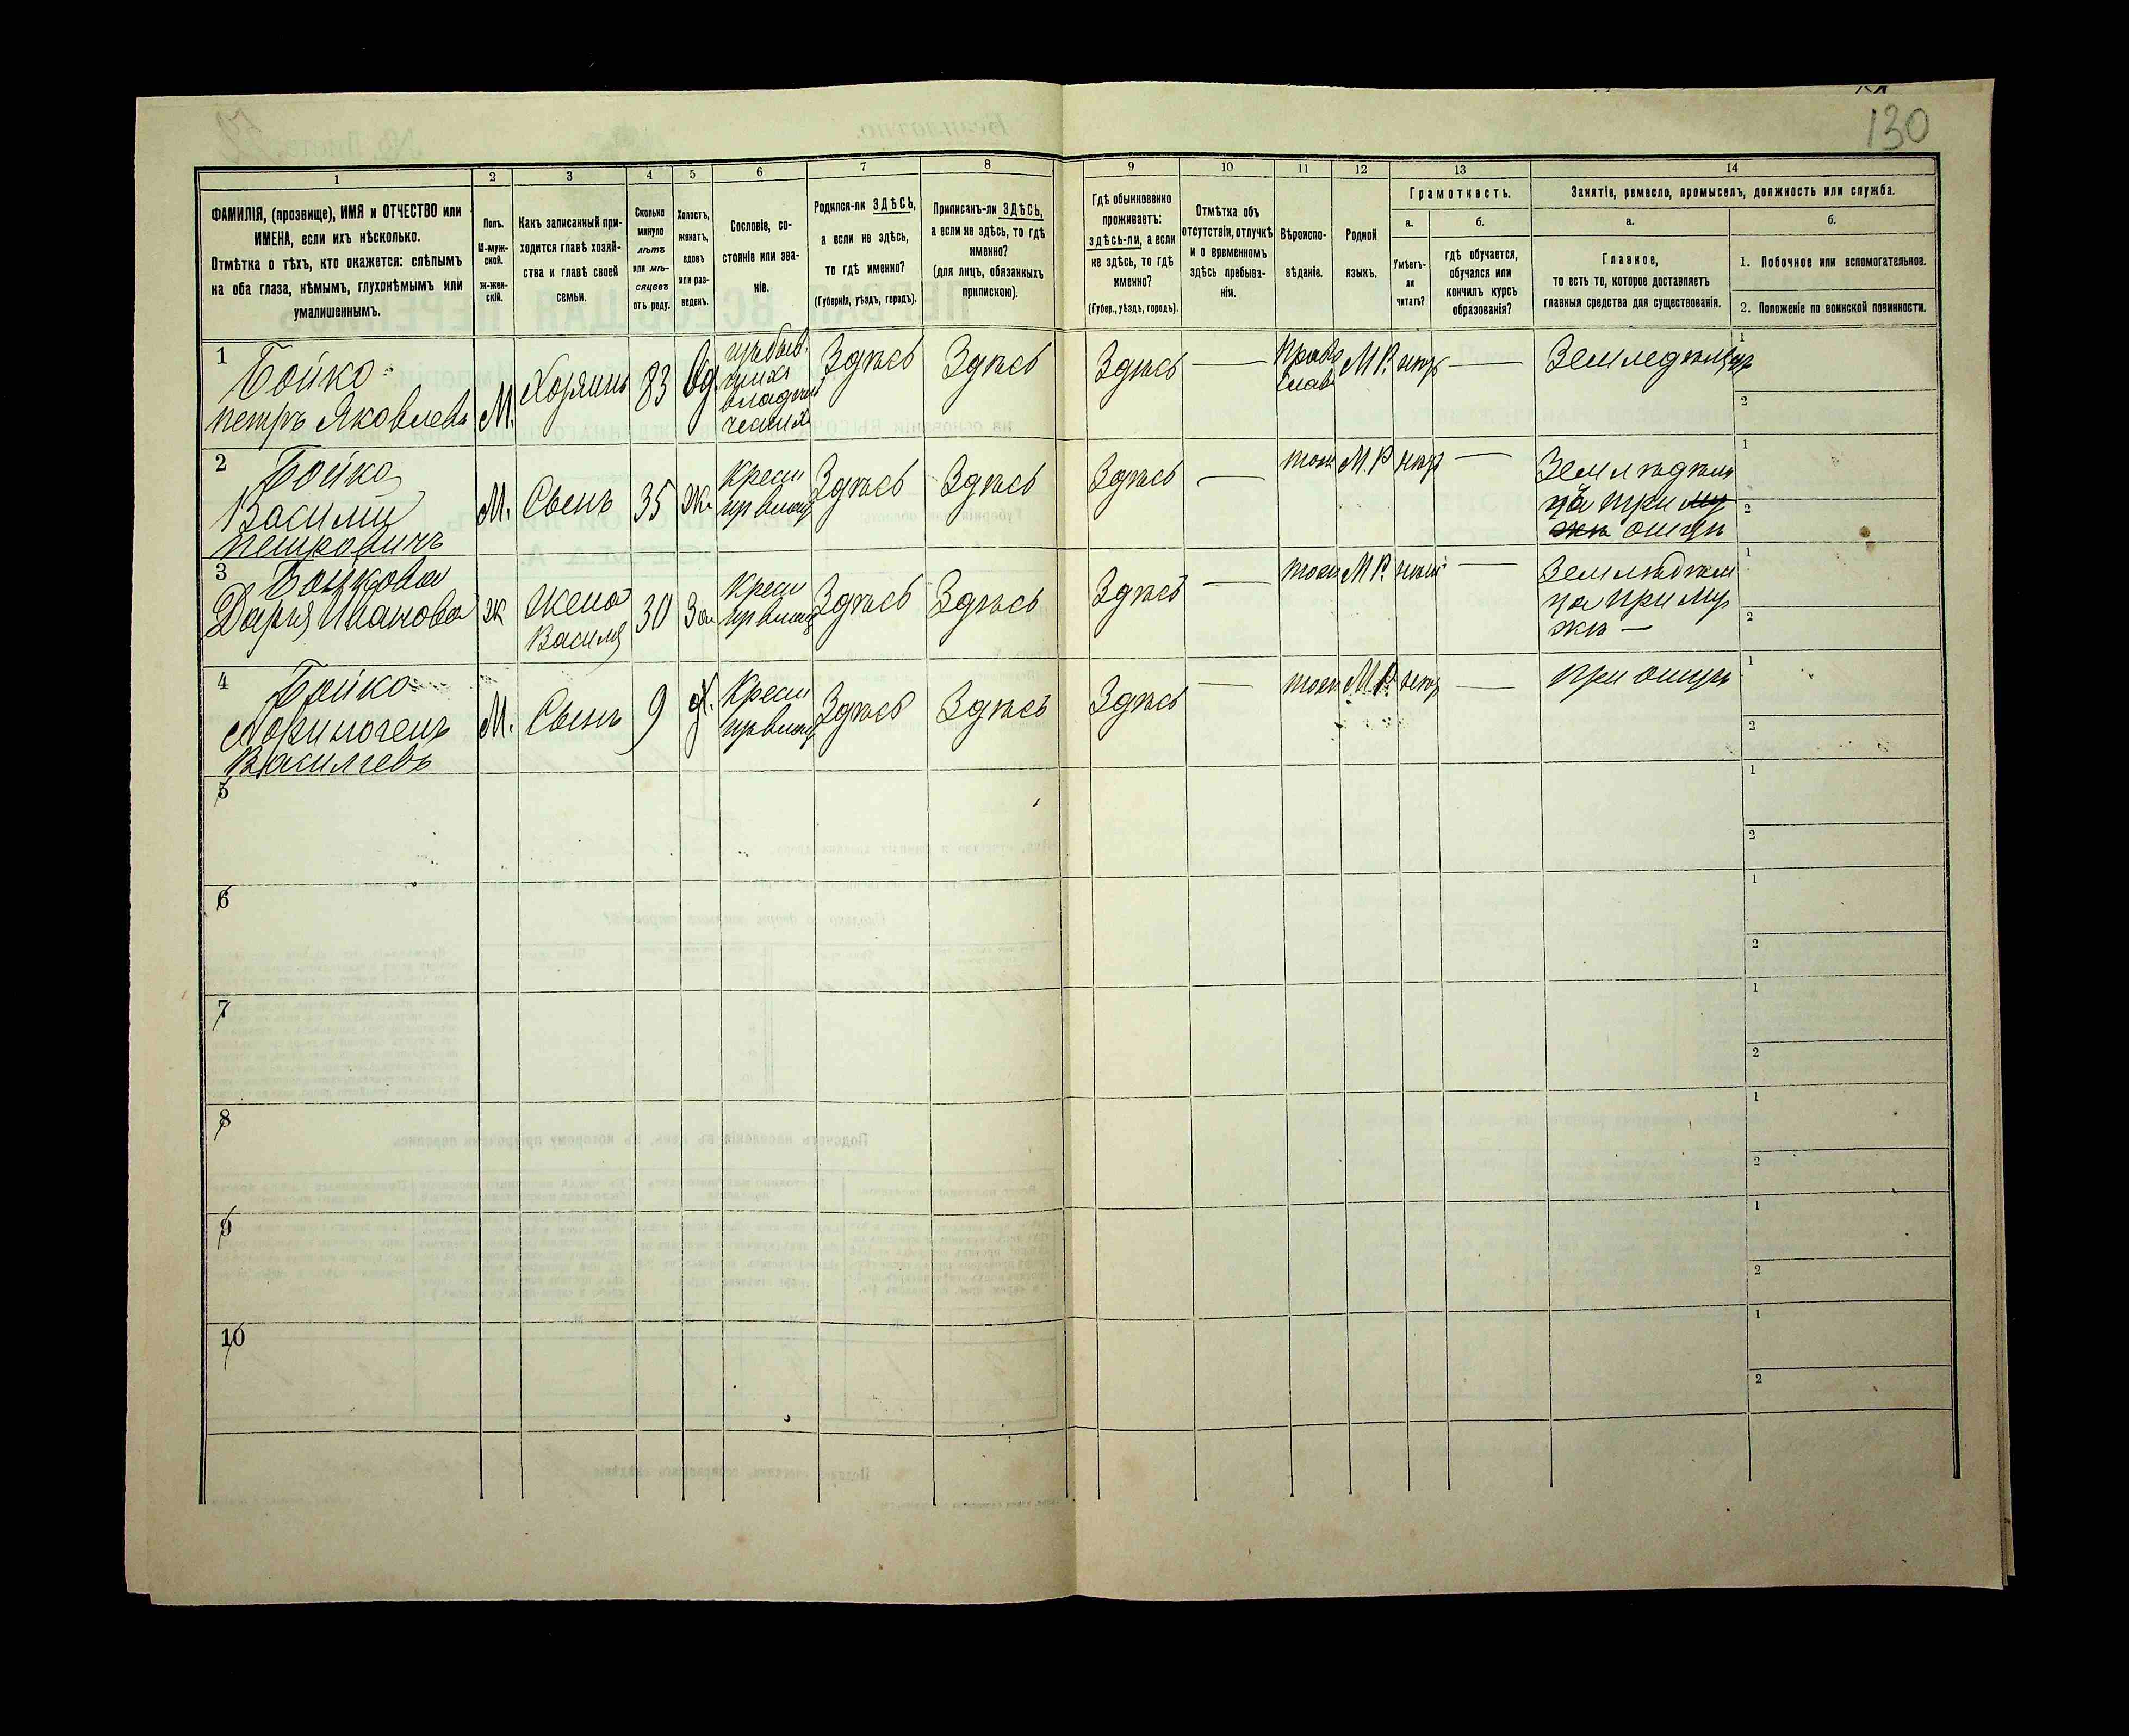 130
1 2 3 4 5 6 7 8 9 10 11 12 13 14
ФАМИЛІЯ, (прозвище), ИМЯ и ОТЧЕСТВО или
ИМЕНА, если ихъ нѣсколько.
Отмѣтка о тѣхъ, кто окажется: слѣпымъ
на оба глаза, нѣмымъ, глухонѣмымъ или
умалишеннымъ.
Полъ.
М-муж-
ской.
Ж-жен-
скій.
Какъ записанный при-
ходится главѣ хозяй-
ства и главѣ своей
семьи.
Сколько
минуло
лѣтъ
или мѣ-
сяцевъ
отъ роду.
Холостъ,
женатъ,
вдовъ
или раз-
веденъ.
Сословіе, со-
стояніе или зва-
ніе.
Родился-ли ЗДѢСЬ,
а если не здѣсь,
то гдѣ именно?
(Губернія, уѣздъ, городъ).
Приписанъ-ли ЗДѢСЬ,
а если не здѣсь, то гдѣ
именно?
(для лицъ, обязанныхъ
припискою).
Гдѣ обыкновенно
проживаетъ:
здѣсь-ли, а если
не здѣсь, то гдѣ
именно?
(Губер., уѣздъ, городъ).
Отмѣтка объ
отсутствіи, отлучкѣ
и о временномъ
здѣсь пребыва-
ніи.
Вѣроиспо-
вѣданіе.
Родной
языкъ.
Грамотность.
а.
Умѣетъ-
ли
читать?
б.
гдѣ обучается,
обучался или
кончилъ курсъ
образованія?
Занятіе, ремесло, промыселъ, должность или служба.
а.
Главное,
то есть то, которое доставляетъ
главныя средства для существованія.
б.
1. Побочное или вспомогательное.
2. Положеніе по воинской повинности.
1
Бойко
петръ Яковлевъ
М.
Хозяинъ
83
Вд
Здѣсь
Здѣсь
Здѣсь
—
Право
слав
М Р.
—
Земледѣлецъ
1
2
2
Бойко
Василий
петровичъ
М.
Сынъ
35
Же
Крест
Здѣсь
Здѣсь
Здѣсь
—
тоже
М. Р
—
при
отцѣ
1
2
3
Бойкова
Дарія Иванова
ж
жена
Василя
30
За
Крест
Здѣсь
Здѣсь
Здѣсь
—
тоже
М Р.
—
ца при му
жѣ —
1
2
4
Бойко
Василіевъ
М.
Сынъ
9
Х.
Крест
Здѣсь
Здѣсь
Здѣсь
—
тоже
М Р.
—
при отцѣ
1
2
5
1
2
6
1
2
7
1
2
8
1
2
9
1
2
10
1
2